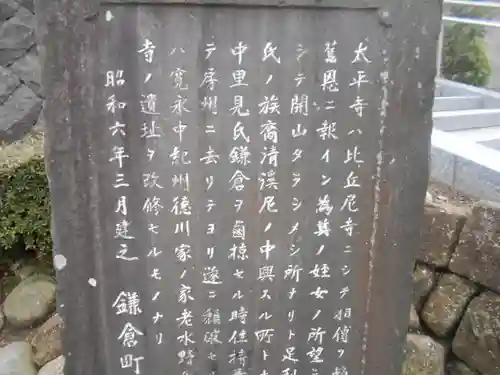 太平寺ハ比丘尼寺ニシテ相傳フ
舊恩ニ報イン為其ノ姪女ノ所望
シテ開山タラシメシ所ナリト足利
氏ノ族裔清溪尼ノ中興スル所トナ
中里見氏鎌倉ヲ鹵掠セル時住持
テ房州ニ去リテヨリ遂ニ頽破セ
ハ寛永中紀州德川家ノ家老水野
寺ノ遺址ヲ改修セルモノナリ
昭和六年三月建之 鎌倉町